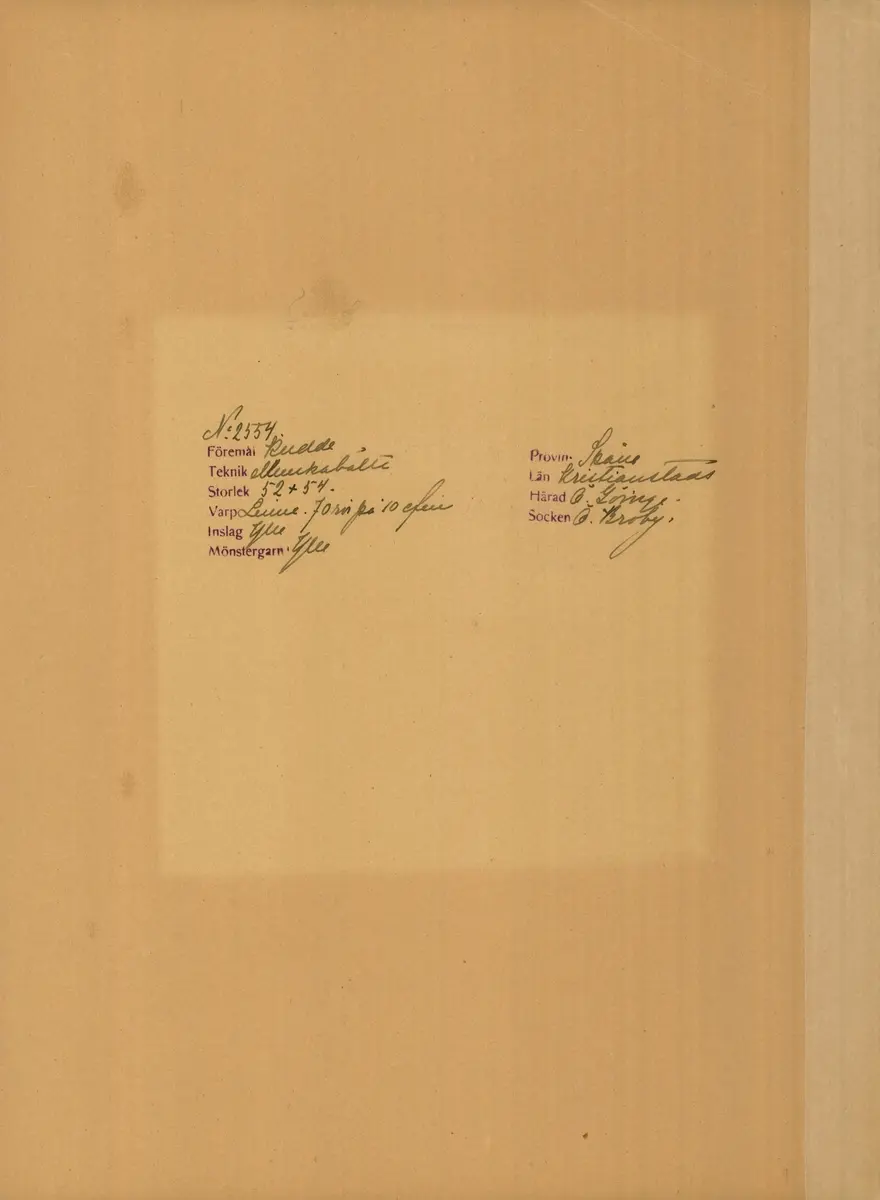 No: 2554.
Föremål Kudde
Teknik Munkabälte
Storlek 52 + 54.
Varp Linne. 70 rör på 10 cm
Inslag Ylle
Mönstergarn Ylle
Provin. Skåne
Län Kristianstads
Härad Ö. Göinge.
Socken Ö. Broby.